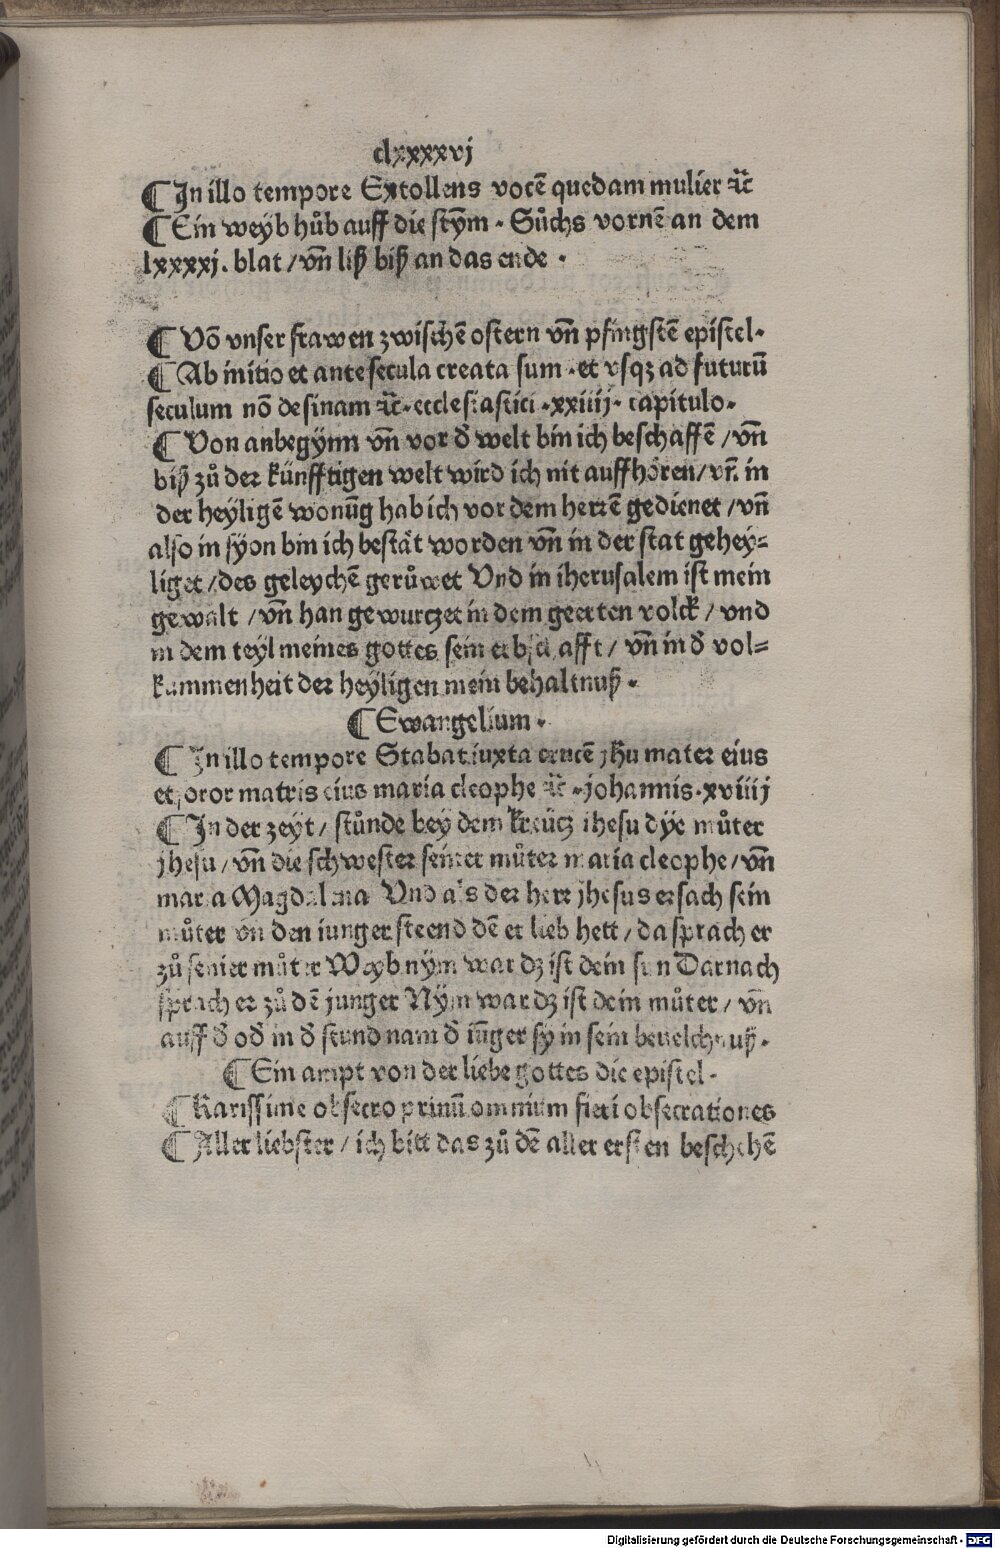 clxxxxvj
¶ In illo tempore Extollens vocē quedam mulier ꝛc̄
¶ Ein weyb hůb auff die stȳm · Sůchs vornē an dem
lxxxxj. blat / vn̄ liß biß an das ende ·
¶ Vō vnser frawen zwischē ostern vn̄ pfingstē epistel·
¶ Ab initio et ante secula creata sum · et vsqꝫ ad futurū
seculum nō desinam ꝛc̄· ecclesiastici ·xxiiij· capitulo·
¶ Von anbegynn vn̄ vor d̄ welt bin ich beschaffē / vn̄
biß zů der künfftigen welt wird ich nit auffhören / vn̄ in
der heyligē wonūg hab ich vor dem herrē gedienet / vn̄
also in syon bin ich bestät worden vn̄ in der stat gehey⸗
liget / des geleychē gerůwet Vnd in iherusalem ist mein
gewalt / vn̄ han gewurczet in dem geerten volck / vnd
in dem teyl meines gottes sein erbschafft / vn̄ in d̄ vol⸗
kummenheit der heyligen mein behaltnuß ·
¶ Ewangelium ·
¶ In illo tempore Stabat iuxta crucē jhu mater eius
et soror matris eius maria cleophe ꝛc̄ · johannis · xviiij
¶ In der zeyt / stůnde bey dem kreücz ihesu dye můter
jhesu / vn̄ die schwester seiner můter maria cleophe / vn̄
maria Magdalena Vnd als der herr jhesus ersach sein
můter vn̄ den iunger steend dē er lieb hett / da sprach er
zů seiner můter Weyb nȳm war dz ist dein sun Darnach
sprach er zů dē junger Nȳm war dz ist dein můter / vn̄
auff d̄ od̄ in d̄ stund nam d̄ iūger sy in sein beuelchnuß ·
¶ Ein ampt von der liebe gottes die epistel ·
¶ Karissime obsecro primū omnium fieri obsecrationes
¶ Aller liebster / ich bitt das zů dē aller ersten beschehē
Digitalisierung gefördert durch die Deutsche Forschungsgemeinschaft - DFG